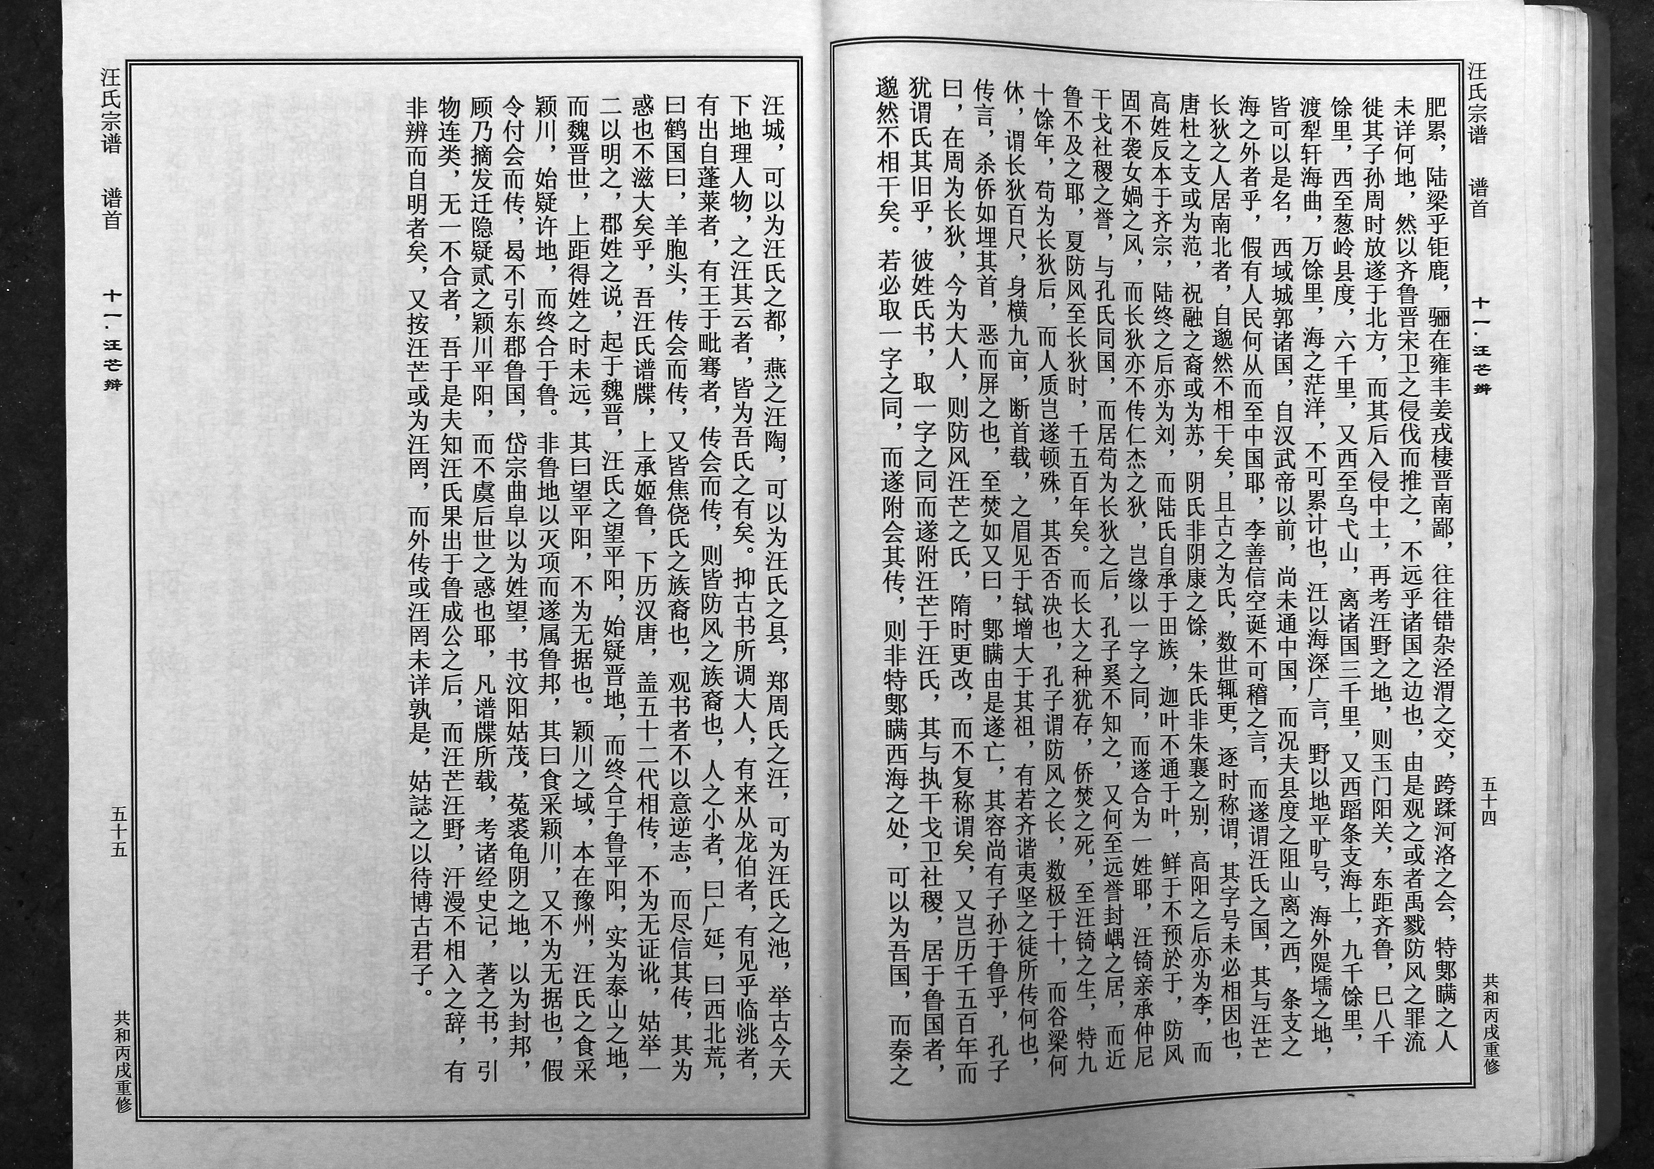 汪氏宗谱 谱首 十一·汪芒辩 五十四 共和丙戌重修
肥累，陆梁乎钜鹿，骊在雍丰姜戎棲晋南鄙，往往错杂泾渭之交，跨蹂河洛之会，特鄋瞒之人
未详何地，然以齐鲁晋宋卫之侵伐而推之，不远乎诸国之边也，由是观之或者禹戮防风之罪流
徙其子孙周时放遂于北方，而其后入侵中土，再考汪野之地，则玉门阳关，东距齐鲁，巳八千
馀里，西至葱岭县度，六千里，又西至乌弋山，离诸国三千里，又西蹈条支海上，九千馀里，
渡犁轩海曲，万馀里，海之茫洋，不可累计也，汪以海深广言，野以地平旷号，海外隄壖之地，
皆可以是名，西域城郭诸国，自汉武帝以前，尚未通中国，而况夫县度之阻山离之西，条支之
海之外者乎，假有人民何从而至中国耶，李善信空诞不可稽之言，而遂谓汪氏之国，其与汪芒
长狄之人居南北者，自邈然不相干矣，且古之为氏，数世辄更，逐时称谓，其字号未必相因也，
唐杜之支或为范，祝融之裔或为苏，阴氏非阴康之馀，朱氏非朱襄之别，高阳之后亦为李，而
高姓反本于齐宗，陆终之后亦为刘，而陆氏自承于田族，迦叶不通于叶，鲜于不预於于，防风
固不袭女娲之风，而长狄亦不传仁杰之狄，岂缘以一字之同，而遂合为一姓耶，汪锜亲承仲尼
干戈社稷之誉，与孔氏同国，而居苟为长狄之后，孔子奚不知之，又何至远誉封嵎之居，而近
鲁不及之耶，夏防风至长狄时，千五百年矣。而长大之种犹存，侨焚之死，至汪锜之生，特九
十馀年，苟为长狄后，而人质岂遂顿殊，其否否决也，孔子谓防风之长，数极于十，而谷梁何
休，谓长狄百尺，身横九亩，断首载，之眉见于轼增大于其祖，有若齐谐夷坚之徒所传何也，
传言，杀侨如埋其首，恶而屏之也，至焚如又曰，鄋瞒由是遂亡，其容尚有子孙于鲁乎，孔子
曰，在周为长狄，今为大人，则防风汪芒之氏，隋时更改，而不复称谓矣，又岂历千五百年而
犹谓氏其旧乎，彼姓氏书，取一字之同而遂附汪芒于汪氏，其与执干戈卫社稷，居于鲁国者，
邈然不相干矣。若必取一字之同，而遂附会其传，则非特鄋瞒西海之处，可以为吾国，而秦之
汪城，可以为汪氏之都，燕之汪陶，可以为汪氏之县，郑周氏之汪，可为汪氏之池，举古今天
下地理人物，之汪其云者，皆为吾氏之有矣。抑古书所调大人，有来从龙伯者，有见乎临洮者，
有出自蓬莱者，有王于毗骞者，传会而传，则皆防风之族裔也，人之小者，曰广延，曰西北荒，
曰鹤国曰，羊胞头，传会而传，又皆焦侥氏之族裔也，观书者不以意逆志，而尽信其传，其为
惑也不滋大矣乎，吾汪氏谱牒，上承姬鲁，下历汉唐，盖五十二代相传，不为无证讹，姑举一
二以明之，郡姓之说，起于魏晋，汪氏之望平阳，始疑晋地，而终合于鲁平阳，实为泰山之地，
而魏晋世，上距得姓之时未远，其曰望平阳，不为无据也。颖川之域，本在豫州，汪氏之食采
颖川，始疑许地，而终合于鲁。非鲁地以灭项而遂属鲁邦，其曰食采颖川，又不为无据也，假
令付会而传，曷不引东郡鲁国，岱宗曲阜以为姓望，书汶阳姑茂，菟裘龟阴之地，以为封邦，
顾乃摘发迁隐疑贰之颖川平阳，而不虞后世之惑也耶，凡谱牒所载，考诸经史记，著之书，引
物连类，无一不合者，吾于是夫知汪氏果出于鲁成公之后，而汪芒汪野，汗漫不相入之辞，有
非辨而自明者矣，又按汪芒或为汪罔，而外传或汪罔未详孰是，姑誌之以待博古君子。
汪氏宗谱 谱首 十一·汪芒辩 五十五 共和丙戌重修